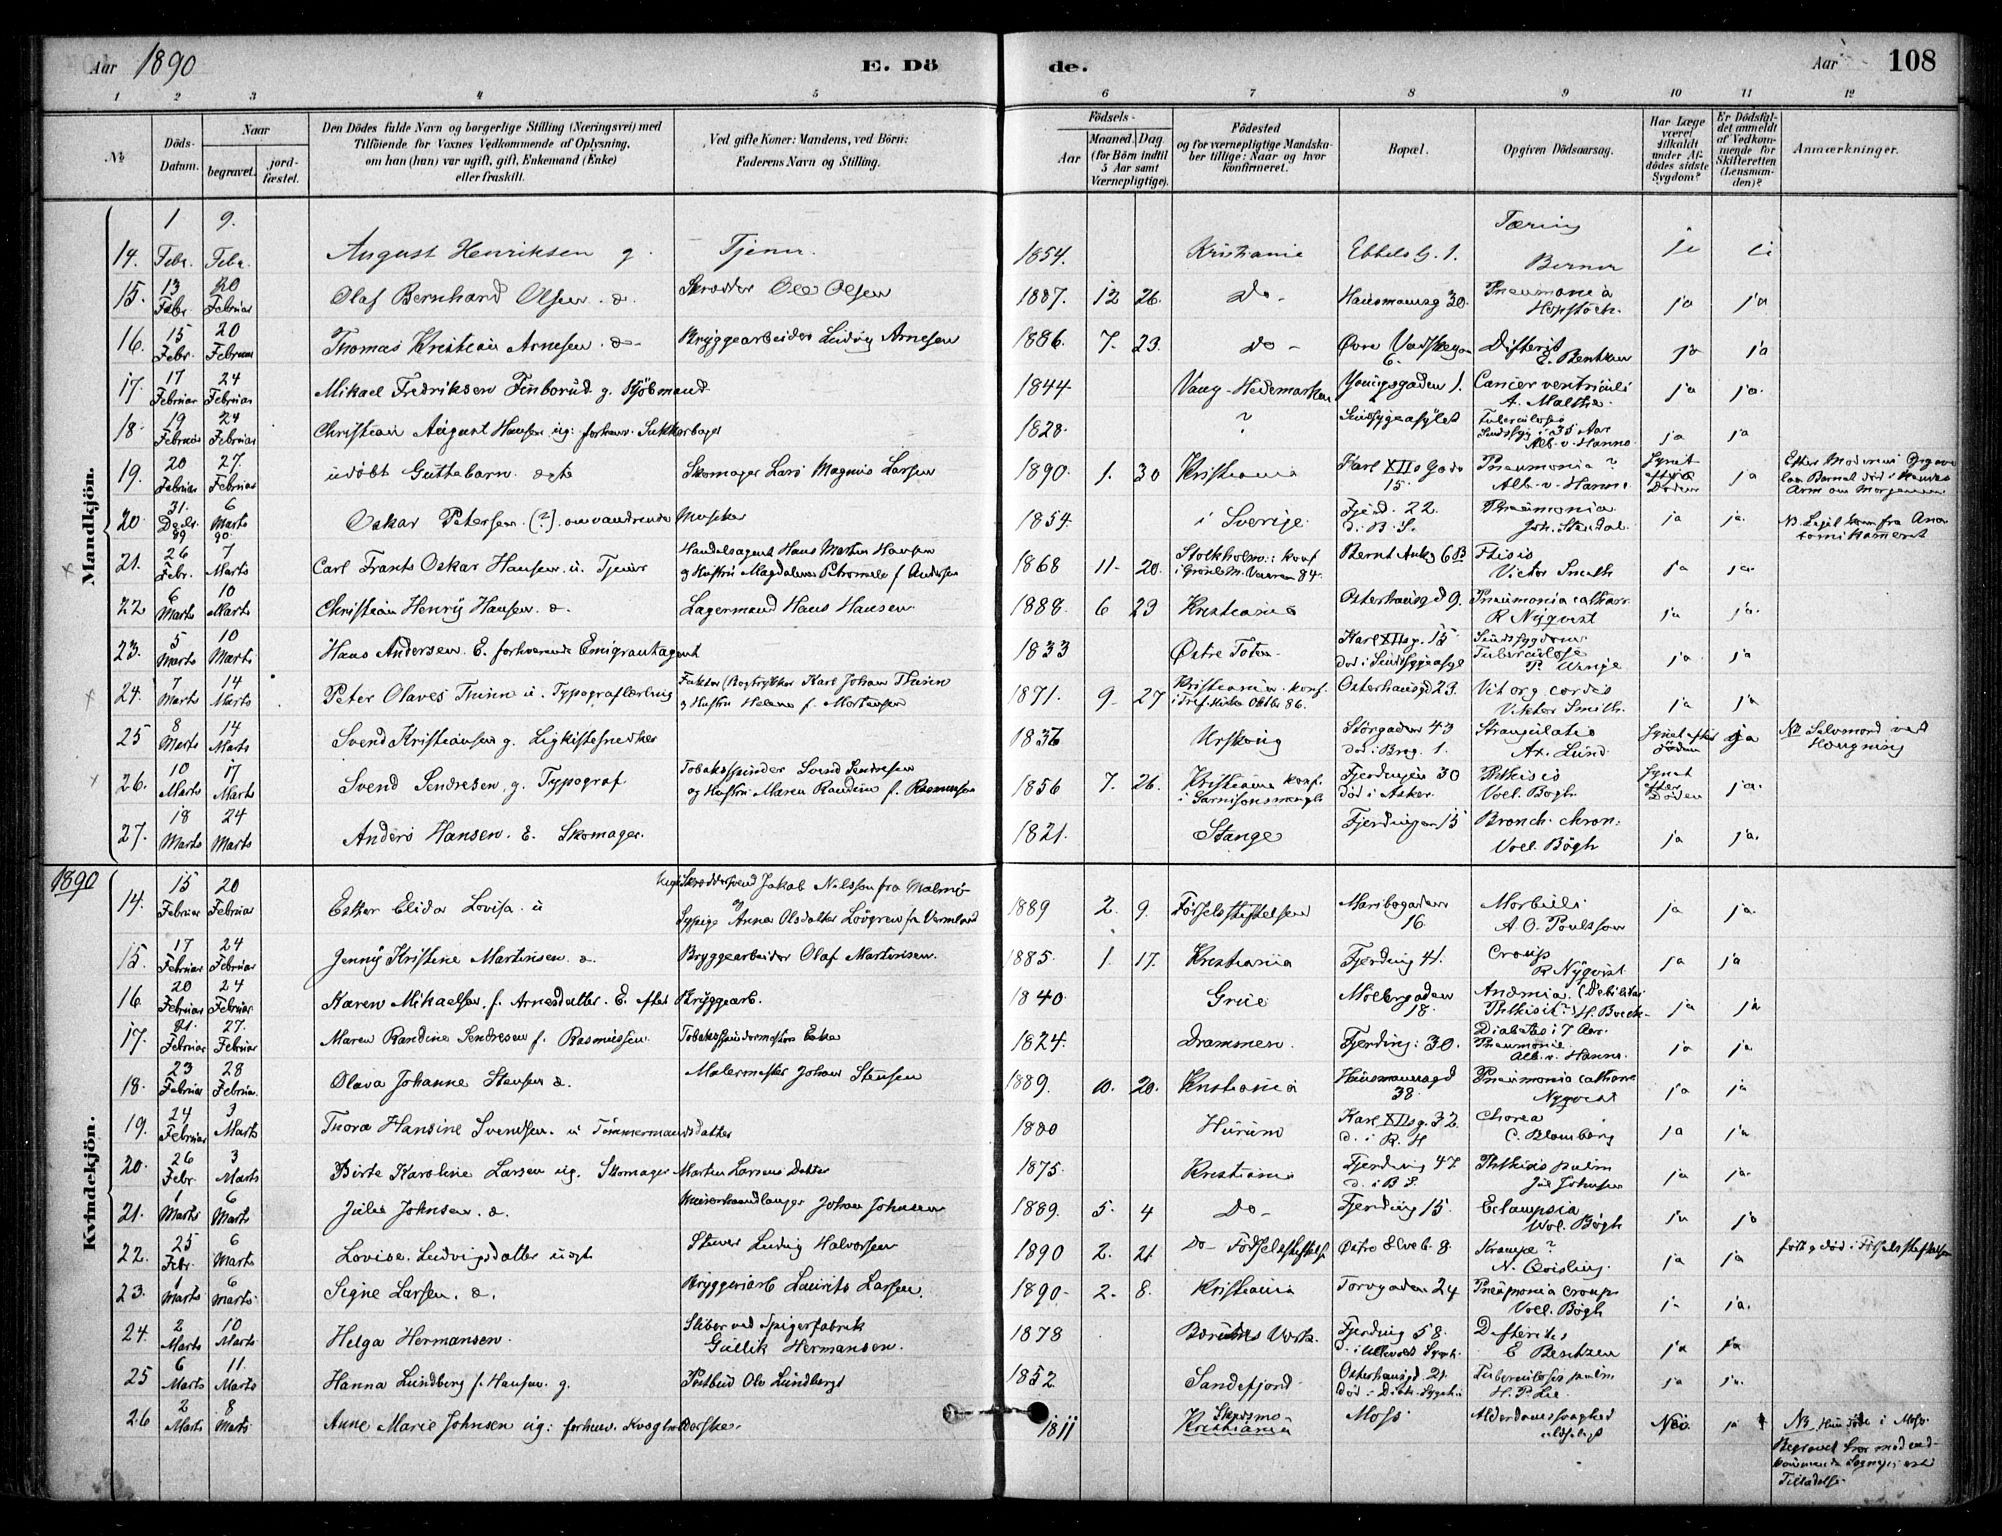 Aar 1890 E. Dö de. Aar 108
1 2 3 4 5 6 7 8 9 10 11 12
№ Döds-Datum. Naar begravet. jord-fæstet. Den Dödes fulde Navn og borgerlige Stilling (Næringsvei) med Tilföiende for Voxnes Vedkommende af Oplysning, om han (hun) var ugift, gift, Enkemand (Enke) eller fraskilt. Ved gifte Koner: Mandens, ved Börn: Faderens Navn og Stilling. Födsels- Aar Maaned. Dag. (for Börn indtil 5 Aar samt Værnepligtige). Födested og for værnepligtige Mandskaber tillige: Naar og hvor konfirmeret. Bopæl. Opgiven Dödsaarsag. Har Læge været tilkaldt under Afdödes sidste Sygdom? Er Dödsfaldet anmeldt af Vedkommende for Skifteretten (Lensmanden)? Anmærkninger.
Mandkjön.
14. 1 Febr. 9. Febr. August Henriksen g. Tjener. 1854. Kristiania Ebbels G. 1. Tæring Berner
15. 13 Febr 20 Februar Olaf Bernhard Olsen Skrædder Ole Olsen 1887. 12 26. Do- Hausmansg 30. Pneumonia Hopstock. ja ja
16. 15 Febr. 20 Februar Thomas Kristian Arnesen Bryggearbeider Ludvig Arnesen 1886. 7. 23. Do- Øvre 6. Difterit E. Bentzen ja ja
17. 17 Februar 24 Februar Mikael Fredriksen Finborud g. Kjöbmand 1844 Vang-Hedemarken Youngsgaden 1. Cancer ventriculi A. Malthe. ja ja.
18. 19 Februar 24 Februar Christian August Hansen ug: forhenv. Sukkerbager 1828. ? Sindsygeasylet Tuberculose Sindssyg i 35 Aar Alb. v. Hanno. ja ja
19. 20 Februar 27. Februar udöbt Guttebarn. ægte Skomager Lars Magnus Larsen 1890. 1. 30 Kristiania Karl XIIs Gade 15. Pneumonia? Alb. v. Hanno Synet efter Döden ja Efter Moderens Opgave laa Barnet död i hendes Arm om Morgenen
20. 31. Decbr. 89 6 Marts 90. Oskar Petersen (?) omvandrende Musiker 1854. i Sverige. Fjerd. 22. d. B. S. Pneumonia Joh. Stendal. ja ja. NB. Liget kom fra Anatomikameret
21. 26 Febr. 7 Marts Carl Frants Oskar Hansen. u. Tjener Handelsagent Hans Martin Hansen og Hustru Magdalena Petronele f. Andersen 1868 11- 20. Stockholm: konf i Grönl. M. Vaaren 84. Bernt Ankg 6B Ftisis Victor Smith ja ja.
22 6 Marts 10 Marts Christian Henry Hansen. Lagermand Hans Hansen. 1888. 6 29 Kristiania Osterhausgd 9. Pneumonia catharr R Nyqvist ja ja.
23. 5 Marts 10 Marts Hans Andersen. E. forhværende Emigrantagent 1833 Østre Toten. Karl XIIsg. 15 död i Sindssygeasyl Sindssygdom Tuberculose P. Winge ja ja
24. 7 Marts 14 Marts Peter Olaves Thunn u. Typograflærling Faktor (Bogtrykker Karl Johan Thunn og Hustru Helene f. Mortensen 1871. 9- 27 Kristiania. konf. i Tref. Kirke Oktbr 86. Osterhausgd 23. Vit org cordis Viktor Smith. ja ja
25 8 Marts 14 Marts Svend Kristiansen g. Ligkistesnedker 1836 Urskoug Storgaden 43 död i Brog. 1. Strangulatio Ax. Lund. Synet efter Döden ja NB Selvmord ved Hængning
26. 10 Marts 17 Marts Svend Sendresen. g. Typograf Tobaksspinder Svend Sendresen og Hustru Maren Randine f. Rasmussen 1856 7. 26. Kristiania konf. i Garnisonsmenigh. Fjerdingen 30 död i Asker. Phthisis Voll. Bögh. Synet efter Döden ja.
27. 18 Marts 24 Marts Anders Hansen. E. Skomager. 1821. Stange Fjerdingen 15 Bronch. chron. Voll. Bögh ja ja.
1890
Kvindekjön.
14. 15 Februar 20 Februar Esther Elida Lovisa. u Skræddersvend Jakob Nilsson fra Malmö og Sypige Anna Olsdatter Lövgren fra Vermland 1889 2. 9. Födselsstiftelsen Maribogaden 16. Morbilli A. O. Poulsson ja ja.
15. 17 Februar 24 Februar Jenny Kristine Martinsen Bryggearbeider Olaf Martinsen. 1885. 1. 17. Kristiania Fjerding 41. Croup R Nyqvist ja ja
16 20 Februar 24 Februar Karen Mikaelsen f. Arnesdatter. E. efter Bryggearb. 1840. Grue Möllergaden 18. Anæmia. (Debilitas Phthisis?) H. Boeck. ja ja
17. 21. Februar 27. Februar Maren Randine Sendresen f. Rasmussen. Tobaksspindermesters Enke 1824. Drammen. Fjerding: 30. Diabetes i 7 Aar. Pneumonie. Alb. v. Hanno. ja ja
18. 23 Februar 28 Februar. Olava Johanne Stensen Malermester Johan Stensen 1889. 10. 20. Kristiania Hausmannsgd 38. Pneumonia catharr Nyqvist ja ja
19. 24 Februar 3 Marts Thora Hansine Svendsen. u Tömmermandsdatter 1880 Hurum Karl XIIsg. 32. d. i R. H Chorea C. Blomberg ja ja.
20. 26 Febr. 3 Marts Birte Karoline Larsen ug. Skomager Marten Larsens Datter 1875. Kristiania Fjerding 47. d. i B S. Phthisis pulm Jul Johnsen ja ja.
21. 1 Marts 6 Marts Julie Johnsen. Murerhaandlanger Johan Johnsen 1889. 5. 4 Do- Fjerding 15. Eclampsia Vol. Bögh ja ja
22. 25 Febr. 6 Marts Lovise. Ludvigsdatter uægt Stuer Ludvig Halvorsen 1890 2. 21 Do- Födselsstiftelse Østre Elveb. 8. Krampe? N. Qvisling. ja ja födt og död i Födselsstiftelsen
23. 1 Marts 6 Marts Signe Larsen. Bryggeriarb Laurits Larsen. 1890- 2. 8. Kristiania Torvgaden 24 Pneumonia croup Voll. Bögh ja ja.
24. 2 Marts 10 Marts Helga Hermansen. Sliber ved Spigerfabrik Gullik Hermansen. 1878 Bærums Verk. Fjerding 58. d. i Ullevold Sygeh. Difterites E Bentzen ja ja
25 6 Marts 11. Marts Hanna Lundberg f. Hansen. g. Postbud Ole Lundbergs 1852 Sandefjord Osterhausgd 21. Död i Diak. Sygeh. Tuberculosis pulm H. P. Lie. ja ja.
26 2 Marts 8 Marts Anne Marie Johnsen ug: forhenv. 1811 Skedsmo- Kristiania Moss Alderdomssvaghed Nei. ja NB. Hun döde i Moss. Begravet her med vedkommende Tilladelse.